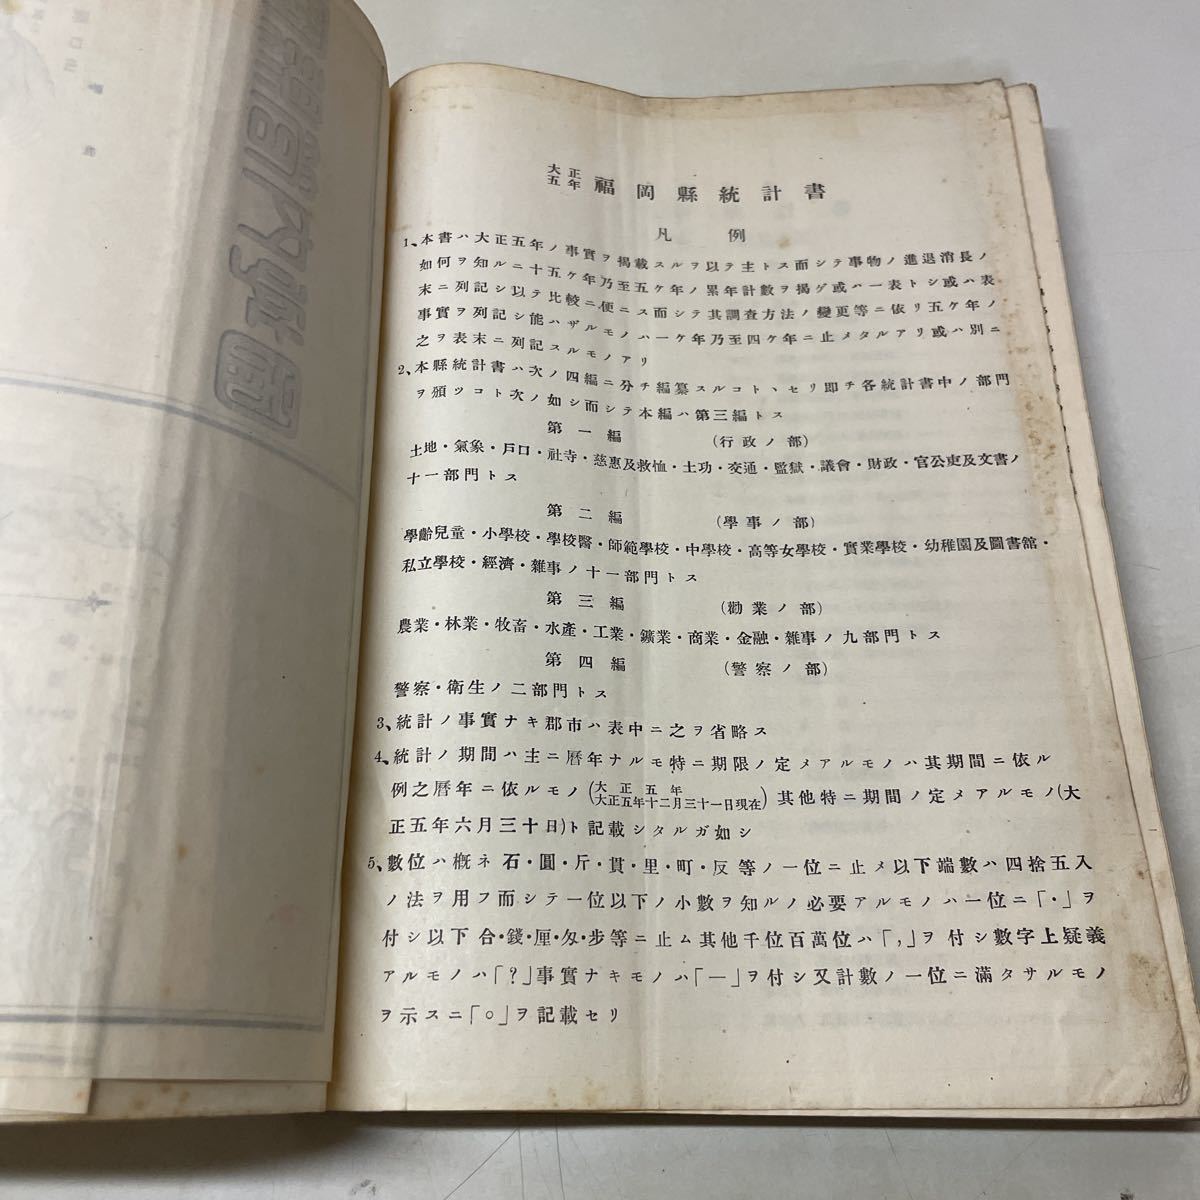 大正五年 福岡縣統計書
凡例
1、本書ハ大正五年ノ事實ヲ揭載スルヲ以テ主トス而シテ事物ノ進退消長ノ
如何ヲ知ルニ十五ケ年乃至五ケ年ノ累年計數ヲ揭ゲ或ハ一表トシ或ハ表
末ニ列記シ以テ比較ニ便ニス而シテ其調査方法ノ變更等ニ依リ五ケ年ノ
事實ヲ列記シ能ハザルモノハ一ケ年乃至四ケ年ニ止メタルアリ或ハ別ニ
之ヲ表末ニ列記スルモノアリ
2、本縣統計書ハ次ノ四編ニ分チ編纂スルコトヽセリ即チ各統計書中ノ部門
ヲ頒ツコト次ノ如シ而シテ本編ハ第三編トス
第一編 (行政ノ部)
土地・氣象・戶口・社寺・慈惠及救恤・土功・交通・監獄・議會・財政・官公吏及文書ノ
十一部門トス
第二編 (學事ノ部)
學齡兒童・小學校・學校醫・師範學校・中學校・高等女學校・實業學校・幼稚園及圖書舘・
私立學校・經濟・雜事ノ十一部門トス
第三編 (勸業ノ部)
農業・林業・牧畜・水產・工業・鑛業・商業・金融・雜事ノ九部門トス
第四編 (警察ノ部)
警察・衞生ノ二部門トス
3、統計ノ事實ナキ郡市ハ表中ニ之ヲ省略ス
4、統計ノ期間ハ主ニ曆年ナルモ特ニ期限ノ定メアルモノハ其期間ニ依ル
例之曆年ニ依ルモノ(大正五年 大正五年十二月三十一日現在)其他特ニ期間ノ定メアルモノ(大
正五年六月三十日)ト記載シタルガ如シ
5、數位ハ槪ネ石・圓・斤・貫・里・町・反等ノ一位ニ止メ以下端數ハ四捨五入
ノ法ヲ用フ而シテ一位以下ノ小數ヲ知ルノ必要アルモノハ一位ニ「・」ヲ
付シ以下合・錢・厘・匁・步等ニ止ム其他千位百萬位ハ「,」ヲ付シ數字上疑義
アルモノハ「?」事實ナキモノハ「—」ヲ付シ又計數ノ一位ニ滿タサルモノ
ヲ示スニ「○」ヲ記載セリ